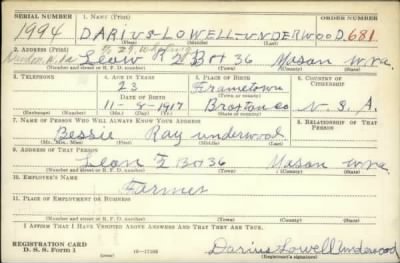 SERIAL NUMBER 1. NAME (Print) ORDER NUMBER
1994 DARIUS-LOWELL-UNDERWOOD 681
(First) (Middle) (Last)
2. ADDRESS (Print)
Leon R 2 Box 36 Mason W.Va.
(Number and street or R. F. D. number) (Town) (County) (State)
3. TELEPHONE 4. AGE IN YEARS 5. PLACE OF BIRTH 6. COUNTRY OF CITIZENSHIP
23 Frametown
DATE OF BIRTH (Town or county)
11-8-1917 Braxton Co U. S. A.
(Exchange) (Number) (Mo.) (Day) (Yr.) (State or country)
7. NAME OF PERSON WHO WILL ALWAYS KNOW YOUR ADDRESS 8. RELATIONSHIP OF THAT PERSON
Bessie Ray underwood
(Mr., Mrs., Miss) (First) (Middle) (Last)
9. ADDRESS OF THAT PERSON
Leon R 2 Box 36 Mason W.Va
(Number and street or R. F. D. number) (Town) (County) (State)
10. EMPLOYER'S NAME
Farmer
11. PLACE OF EMPLOYMENT OR BUSINESS
(Number and street or R. F. D. number) (Town) (County) (State)
I AFFIRM THAT I HAVE VERIFIED ABOVE ANSWERS AND THAT THEY ARE TRUE.
REGISTRATION CARD
D. S. S. Form 1 16-17105 Darius Lowell Underwood
(Registrant's signature)